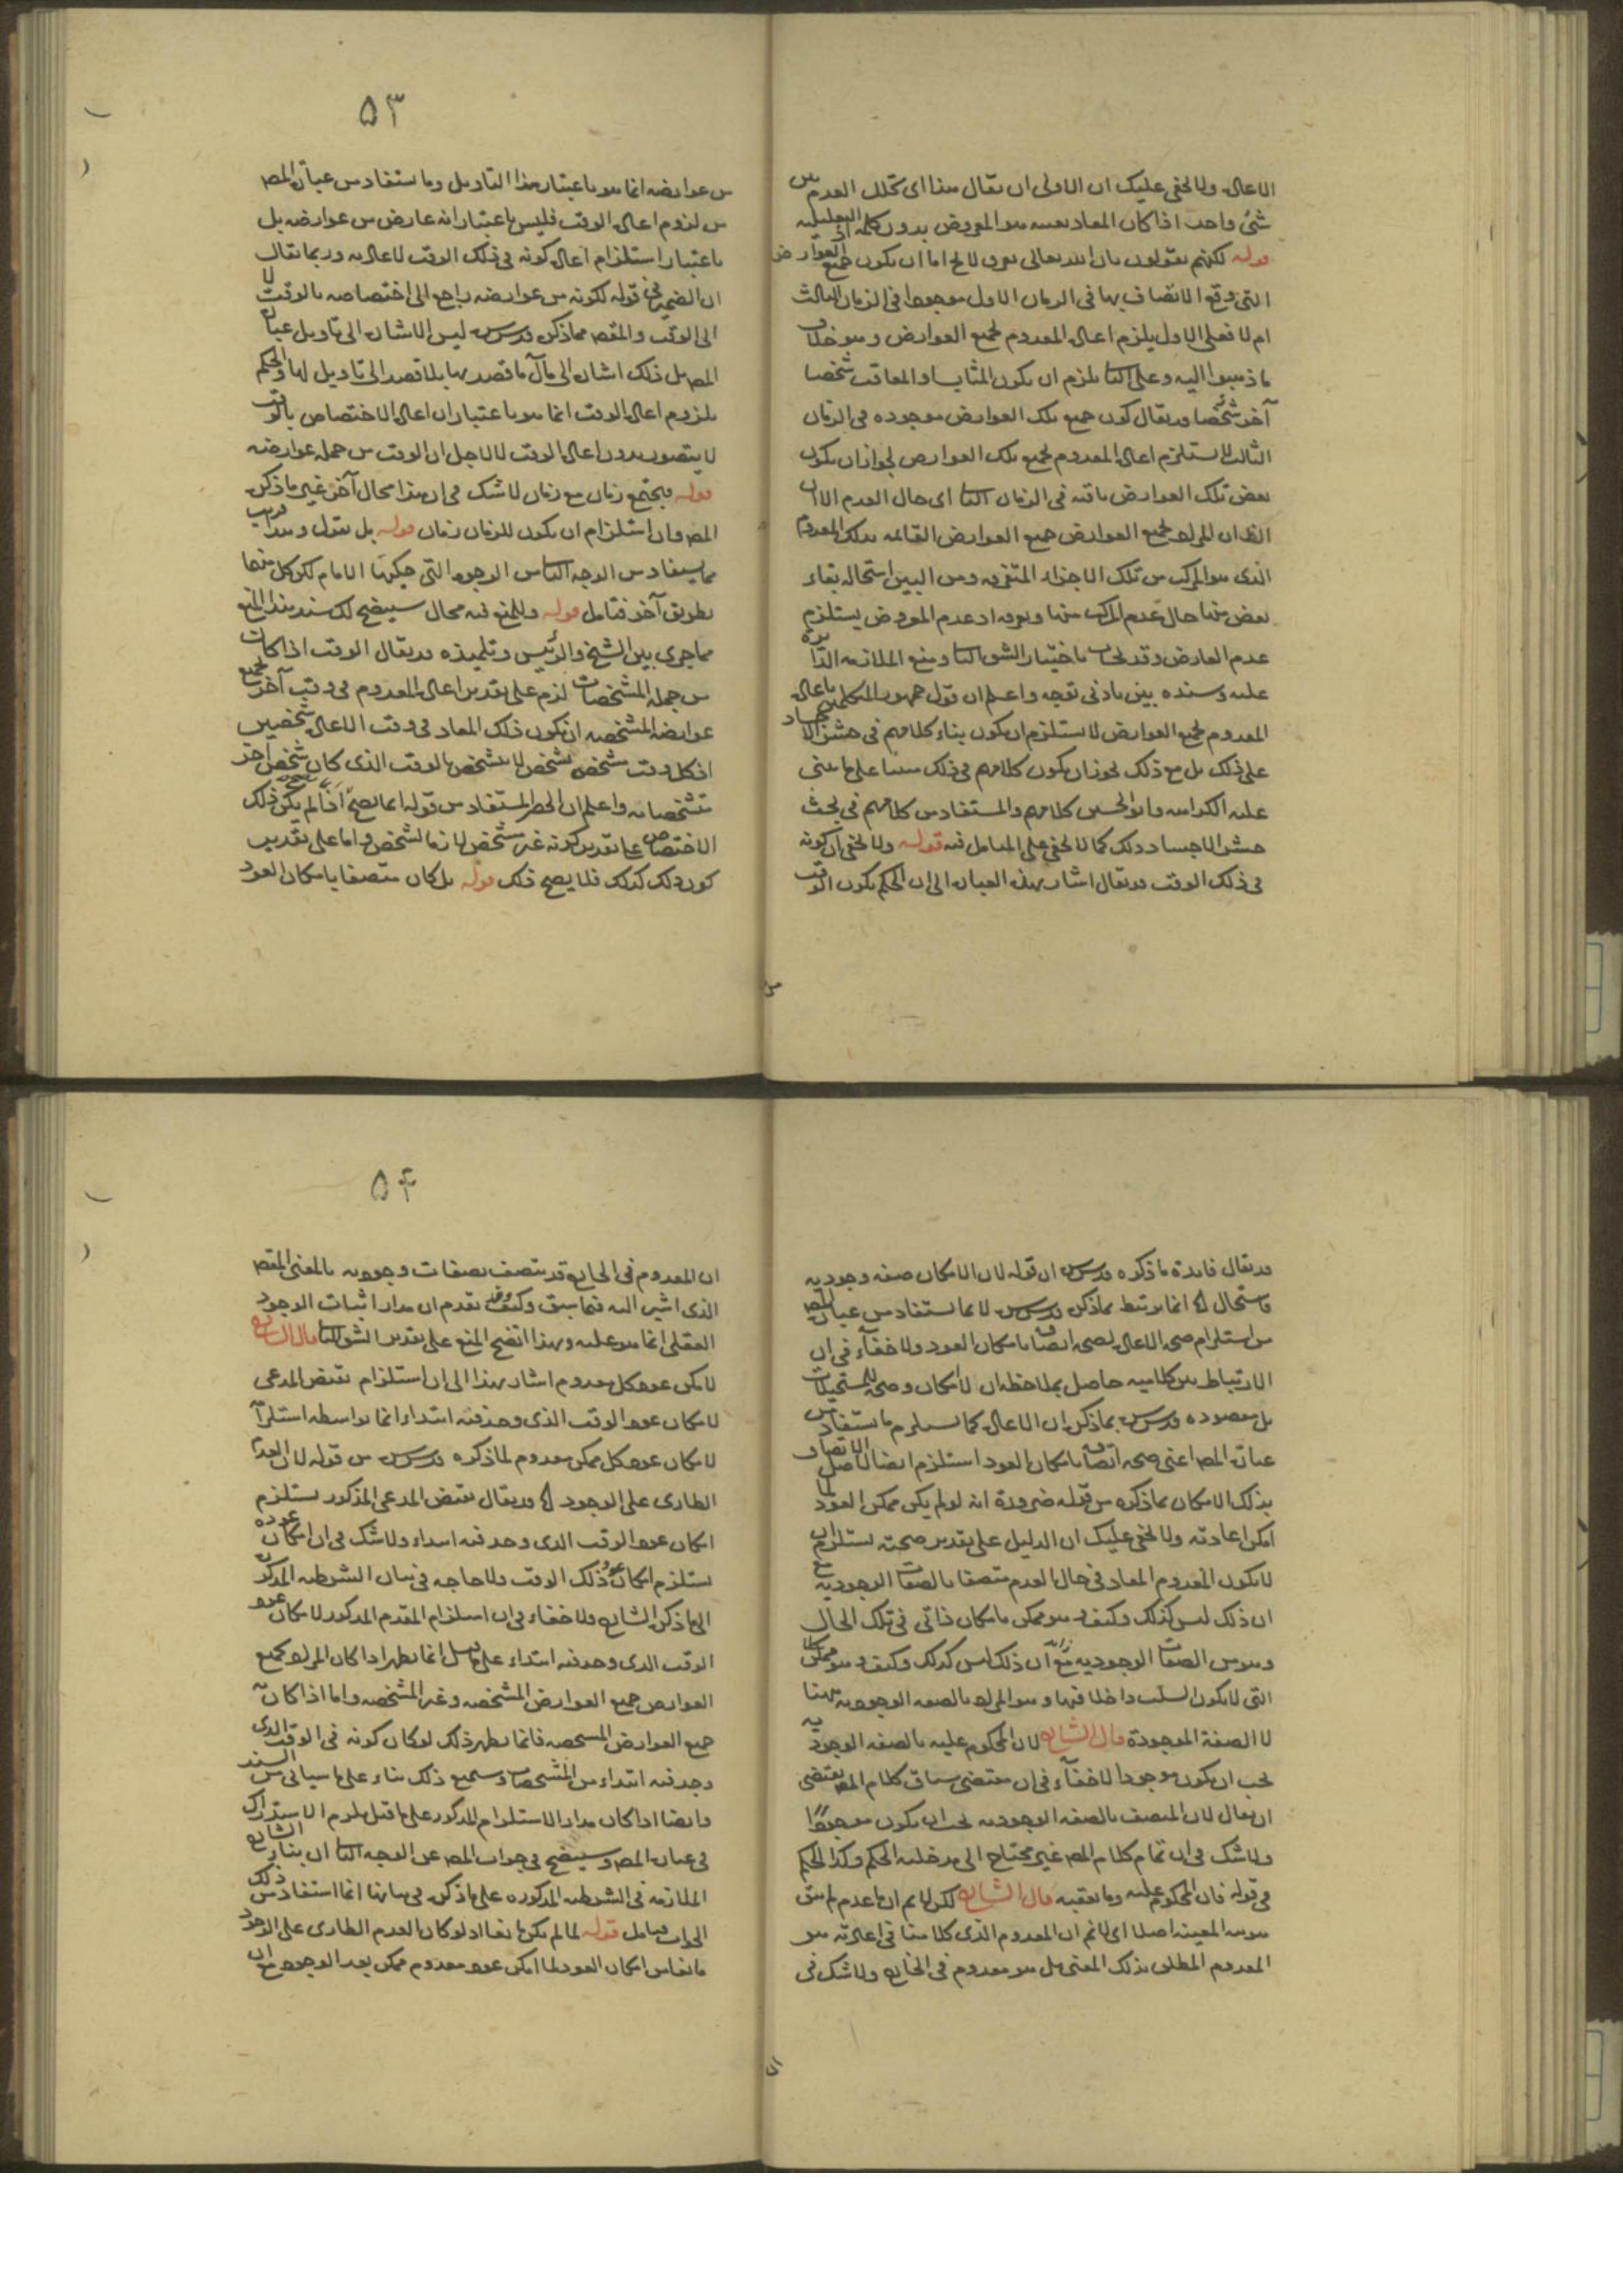 الاعادة ولا يخفى عليك ان الاولى ان يقال هذا اى تخلل العدم من
شئ واحد اذا كان المعاد بعينه هو المعروض بدون كلمة اذ التعليلية
قوله لكنهم يقولون بان الله تعالى لا يخ اما ان يكون جميع العوارض
التى وقع الاتصاف بها فى الزمان الاول موجودا فى الزمان الثالث
ام لا فعلى الاول يلزم اعادة المعدوم بجميع العوارض وهو خلاف
ما ذهبوا اليه وعلى الثانى يلزم ان يكون المثاب او المعاقب شخصا
آخر شخصا وقد يقال كون جميع تلك العوارض موجوده فى الزمان
الثالث لا يستلزم اعادة المعدوم بجميع تلك العوارض لجواز ان يكون
بعض تلك العوارض باقيه فى الزمان الثانى اى حال العدم الا ان
الظ ان المراد بجميع العوارض جميع العوارض القائمه بذلك المعدوم
الذى هو المركب من تلك الاجزاء المتفرقه ومن البين استحاله بقاء
بعض منها حال عدم المركب منها اذ عدم المعروض يستلزم
عدم العارض وقد يجاب باختيار الشق الثانى ومنع الملازمه الدائرة
عليه وسنده بين بادنى توجه واعلم ان قول جمهور المتكلمين باعادة
المعدوم بجميع العوارض لا يستلزم ان يكون بناء كلامهم فى حشر الاجساد
على ذلك بل مع ذلك يجوز ان يكون كلامهم فى ذلك مبنيا على ما بنى
عليه الكراميه وابو الحسين كلامهم والمستفاد من كلامهم فى بحث
حشر الاجساد ذلك كما لا يخفى على المتامل فيه قوله ولا يخفى ان كونه
فى ذلك الوقت قد يقال اشار بهذه العبارة الى ان الحكم بكون الوقت
۵۳
من عوارضه انما هو باعتبار هذا التاويل وما يستفاد من عبارة المص
من لزوم اعادة الوقت فليس باعتبار انه عارض من عوارضه بل
باعتبار استلزام اعادة كونه فى ذلك الوقت لاعادته وربما يقال
ان الضمير فى قوله لكونه من عوارضه راجع الى اختصاصه بالوقت لا
الى الوقت والمقص مما ذكره قدس سره ليس الاشارة الى تاويل عبارة
المص بل ذلك اشارة الى مآل ما قصد بها بلا قصد الى تاويل لها والحكم
بلزوم اعادة الوقت انما هو باعتبار ان اعادة الاختصاص بالوقت
لا يتصور بدون اعادة الوقت لا لاجل ان الوقت من جمله عوارضه
قوله فيجتمع زمان مع زمان لا شك فى ان هذا محال آخر غير ما ذكره
المص وان استلزام ان يكون للزمان زمان قوله بل نقول وهذا قريب
مما يستفاد من الوجه الثانى من الوجوه التى حكيها الامام لكن كل منهما
بطريق آخر فتامل قوله وللمنع فيه مجال سيتضح لك سند هذا المنع
مما جرى بين الشيخ والرئيس وتلميذه قد يقال الوقت اذا كان
من جملة المشخصات لزم على تقدير اعادة المعدوم فى وقت آخر بجميع
عوارضه المشخصه ان يكون ذلك المعاد فى وقت الاعادة شخصين
اذ كل وقت مشخص بشخص لا يتشخص بالوقت الذى كان شخص آخر
تشخصاته واعلم ان الحصر المستفاد من قوله انما يصح اذا لم يكن ذلك
الاختصاص على تقدير كونه غير مشخص لازما لشخص واما على تقدير
كون ذلك كذلك فلا يصح ذلك قوله بل كان متصفا بامكان العود
قد يقال فائدة ما ذكره قدس سره ان قوله لان الامكان صفه وجوديه
فاستحال الخ انما يرتبط بما ذكره قدس سره لا بما يستفاد من عبارة المص
من استلزام صحه الاعادة لصحه اتصافه بامكان العود ولا خفاء فى ان
الارتباط بين كلاميه حاصل بملاحظه ان لا امكان وصحه للمستحيلات
بل مقصوده قدس سره بما ذكره ان الاعادة كما يستلزم ما يستفاد من
عبارة المص اعنى صحه اتصافه بامكان العود استلزم ايضا لاصل الاتصاف
بذلك الامكان بما ذكره من قوله ضرورة انه لو لم يكن ممكن العود لما
امكن اعادته ولا يخفى عليك ان الدليل على تقدير صحته يستلزم ان
لا يكون المعدوم المعاد فى حال العدم متصفا بالصفات الوجوديه مع
ان ذلك ليس كذلك وكيف وهو ممكن بامكان ذاتى فى تلك الحال
وهو من الصفات الوجوديه مع ان ذلك ليس كذلك وكيف وهو ممكن
التى لا يكون السلب داخلا فيها وهو المراد بالصفه الوجوديه ههنا
لا الصفة الموجودة قال الشارح لان المحكوم عليه بالصفه الوجوديه
يجب ان يكون موجودا لا خفاء فى ان مقتضى سياق كلام المص يقتضى
ان يقال لان المتصف بالصفه الوجوديه يجب ان يكون موجودا
ولا شك فى ان تمام كلام المص غير محتاج الى مدخليه الحكم وكذا الحكم
فى قوله فان المحكوم عليه وما تعقبه قال الشارح لكن لا نم ان ما عدم لم يبق
هويته المعينه اصلا اى لا نم ان المعدوم الذى كلامنا فى اعادته هو
المعدوم المطلق بذلك المعنى بل هو معدوم فى الخارج ولا شك فى
ان
۵۴
ان المعدوم فى الخارج قد يتصف بصفات وجوديه بالمعنى المقص
الذى اشير اليه فيما سبق وكيف وقد تقدم ان مدار اثبات الوجود
العقلى انما هو عليه وبهذا اتضح المنع على تقدير الشق الثانى قال الشارح
لامكن عود كل معدوم اشار بهذا الى ان استلزام نقيض المدعى
لامكان عود الوقت الذى وجد فيه ابتداء انما بواسطه استلزامه
لامكان عود كل ممكن معدوم لما ذكره قدس سره من قوله لان العدم
الطارى على الوجود الخ قد يقال نقيض المدعى المذكور يستلزم
امكان عود الوقت الذى وجد فيه ابتداء ولا شك فى ان امكان عوده
يستلزم امكان عود ذلك الوقت ولا حاجه فى بيان الشرطيه المذكورة
الى ما ذكره الشارح ولا خفاء فى ان استلزام المقدم المذكور لامكان عود
الوقت الذى وجد فيه ابتداء على ما قيل انما يظهر اذا كان المراد بجميع
العوارض جميع العوارض المشخصه وغير المشخصه واما اذا كان
جميع العوارض المشخصه فانما يظهر ذلك لو كان كونه فى الوقت الذى
وجد فيه ابتداء من المشخصات وسيمنع ذلك بناء على ما سياتى من السند
وايضا اذا كان مدار الاستلزام المذكور على ما قيل يلزم الاستدراك
فى عبارة المص وسيتضح فى جواب المص عن الوجه الثانى ان بناء الشارح
الملازمه فى الشرطيه المذكوره على ما ذكره فى بيانها انما استفاد من ذلك
الجواب فتامل قوله لما لم يكن مانعا اذ لو كان العدم الطارى على الوجود
مانعا من امكان العود لما امكن عود معدوم ممكن بعد الوجود مع ان